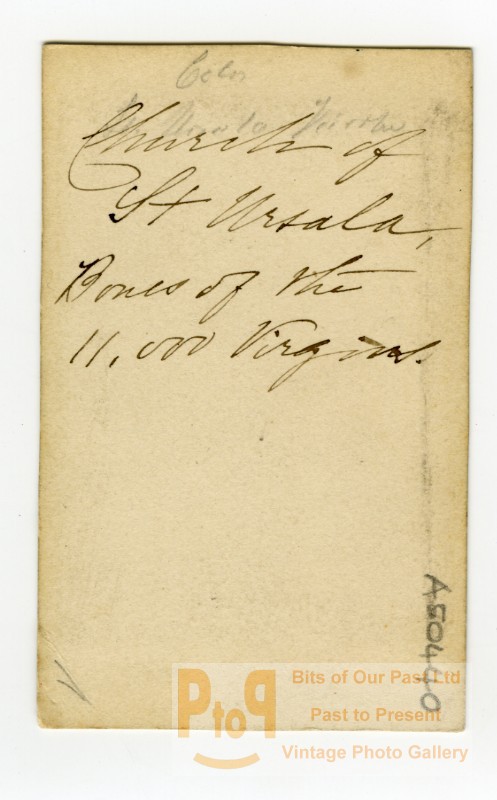 Church of
St Ursala,
Bones of the
11,000 Virgins.
A50440
PtoP
Bits of Our Past Ltd
Past to Present
Vintage Photo Gallery